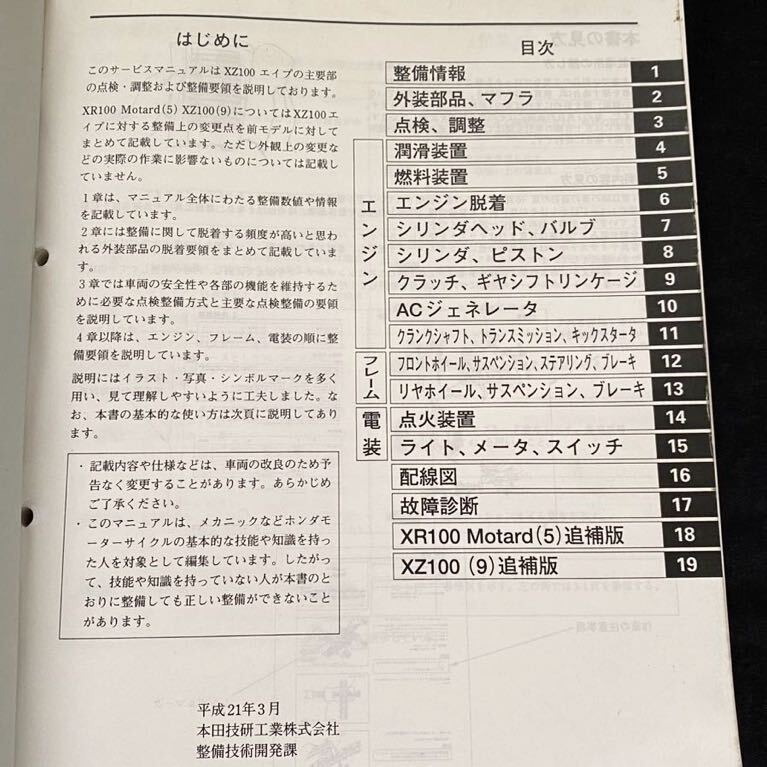 はじめに
このサービスマニュアルは XZ100 エイプの主要部
の点検・調整および整備要領を説明しております。
XR100 Motard(5) XZ100(9)については XZ100 エ
イプに対する整備上の変更点を前モデルに対して
まとめて記載しています。ただし外観上の変更な
どの実際の作業に影響ないものについては記載し
ていません。
1 章は、マニュアル全体にわたる整備数値や情報
を記載しています。
2 章には整備に関して脱着する頻度が高いと思わ
れる外装部品の脱着要領をまとめて記載していま
す。
3 章では車両の安全性や各部の機能を維持するた
めに必要な点検整備方式と主要な点検整備の要領
を説明しています。
4 章以降は、エンジン、フレーム、電装の順に整
備要領を説明しています。
説明にはイラスト・写真・シンボルマークを多く
用い、見て理解しやすいように工夫しました。な
お、本書の基本的な使い方は次頁に説明してあり
ます。
・記載内容や仕様などは、車両の改良のため予
告なく変更することがあります。あらかじめ
ご了承ください。
・このマニュアルは、メカニックなどホンダモ
ーターサイクルの基本的な技能や知識を持っ
た人を対象として編集しています。したがっ
て、技能や知識を持っていない人が本書のと
おりに整備しても正しい整備ができないこと
があります。
平成 21 年 3 月
本田技研工業株式会社
整備技術開発課
目次
整備情報 1
外装部品、マフラ 2
点検、調整 3
エンジン
潤滑装置 4
燃料装置 5
エンジン脱着 6
シリンダヘッド、バルブ 7
シリンダ、ピストン 8
クラッチ、ギヤシフトリンケージ 9
ACジェネレータ 10
クランクシャフト、トランスミッション、キックスタータ 11
フレーム
フロントホイール、サスペンション、ステアリング、ブレーキ 12
リヤホイール、サスペンション、ブレーキ 13
電装
点火装置 14
ライト、メータ、スイッチ 15
配線図 16
故障診断 17
XR100 Motard(5)追補版 18
XZ100 (9)追補版 19